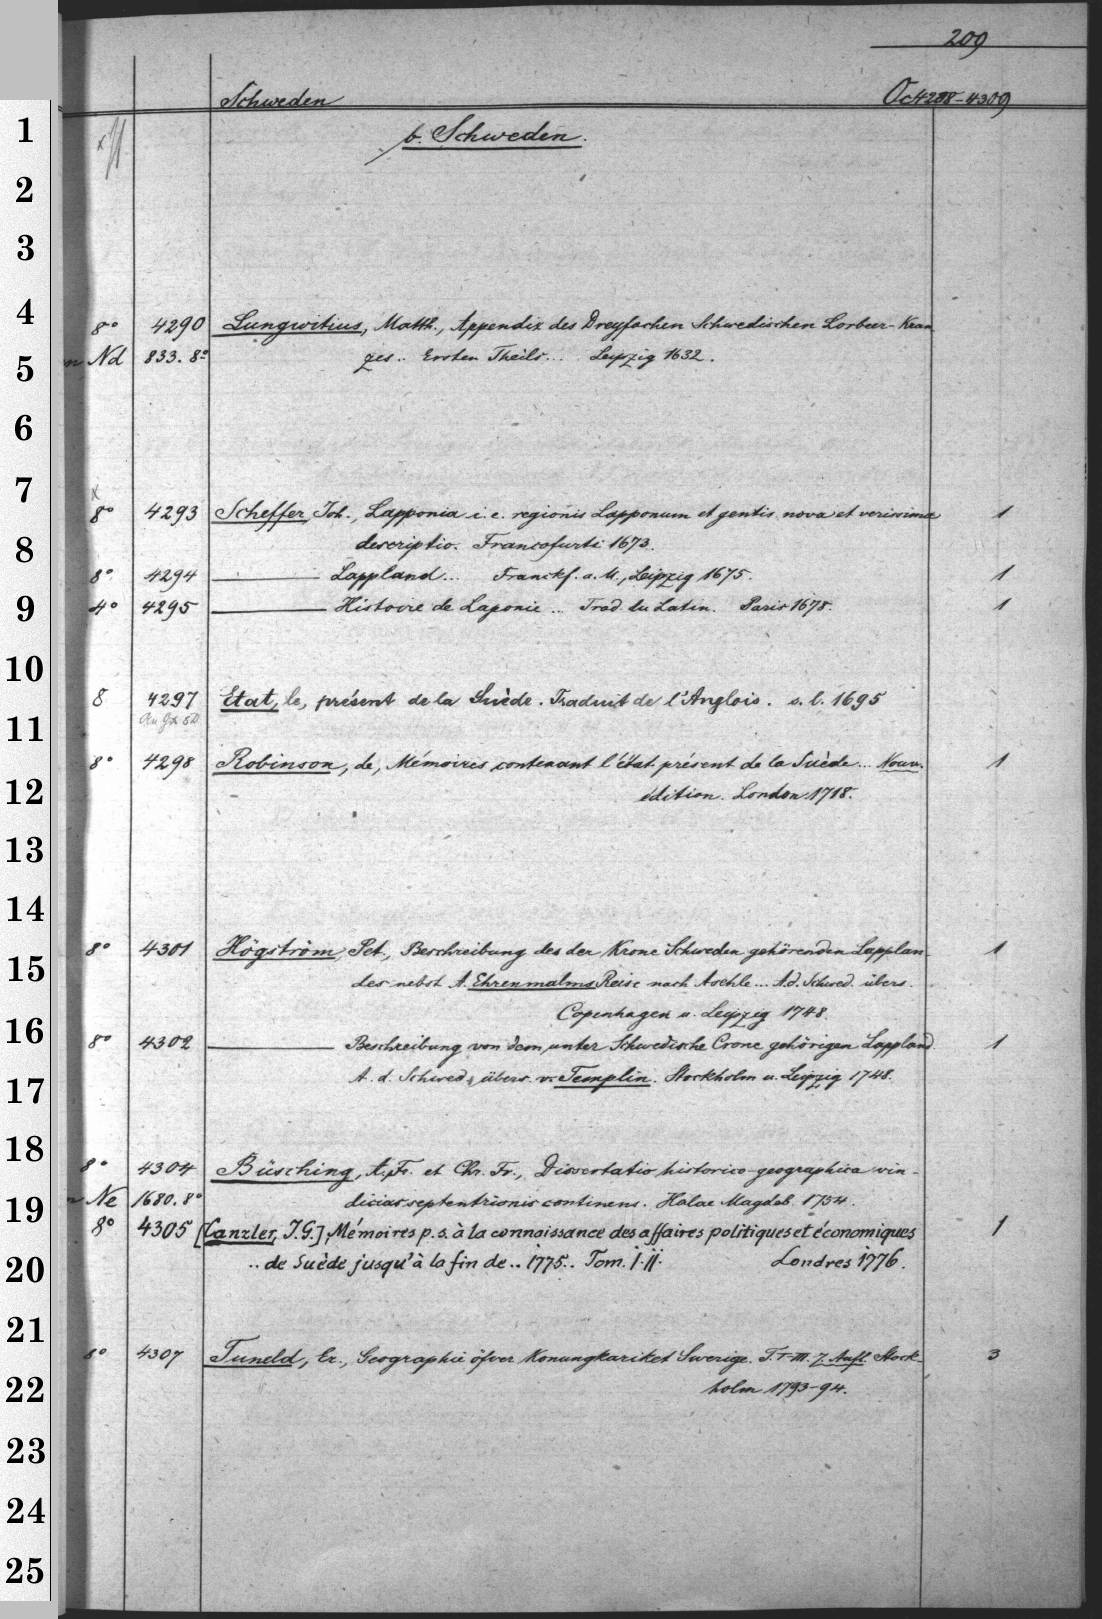 209
Schweden Oc 4288-4309
b. Schweden.
8° 4290 Lungwitius, Matth., Appendix des Dreyfachen Schwedischen Lorbeer-Kran
Nd 833. 8° zes.. Ersten Theils... Leipzig 1632.
x
8° 4293 Scheffer, Joh., Lapponia i. e. regionis Lapponum et gentis nova et verissima 1
descriptio. Francofurti 1673.
8° 4294 ——— Lappland... Franckf. a. M., Leipzig 1675. 1
4° 4295 ——— Histoire de Laponie... Trad. du Latin. Paris 1678. 1
8 4297 Etat, le, présent de la Suède. Traduit de l'Anglois. s. l. 1695
8° 4298 Robinson, de, Mémoires contenant l'état présent de la Suède... Nouv. 1
édition. London 1718.
8° 4301 Högström, Pet., Beschreibung des der Krone Schweden gehörenden Lapplan 1
des nebst A. Ehrenmalms Reise nach Asehle... A. d. Schwed. übers.
Copenhagen u. Leipzig 1748.
8° 4302 ——— Beschreibung von dem unter Schwedische Crone gehörigen Lappland 1
A. d. Schwed. übers. v. Templin. Stockholm u. Leipzig 1748.
8° 4304 Büsching, A. Fr. et Chr. Fr., Dissertatio historico-geographica vin-
Ne 1680. 8° dicias septentrionis continens. Halae Magdeb. 1754.
8° 4305 [Canzler, J. G.], Mémoires p. s. à la connaissance des affaires politiques et économiques 1
.. de Suède jusqu'à la fin de .. 1775.. Tom. I. II. Londres 1776.
8° 4307 Tuneld, Er., Geographie öfver Konungkariket Swerige. T. I-III. 7. Aufl. Stock- 3
holm 1793-94.
1
2
3
4
5
6
7
8
9
10
11
12
13
14
15
16
17
18
19
20
21
22
23
24
25